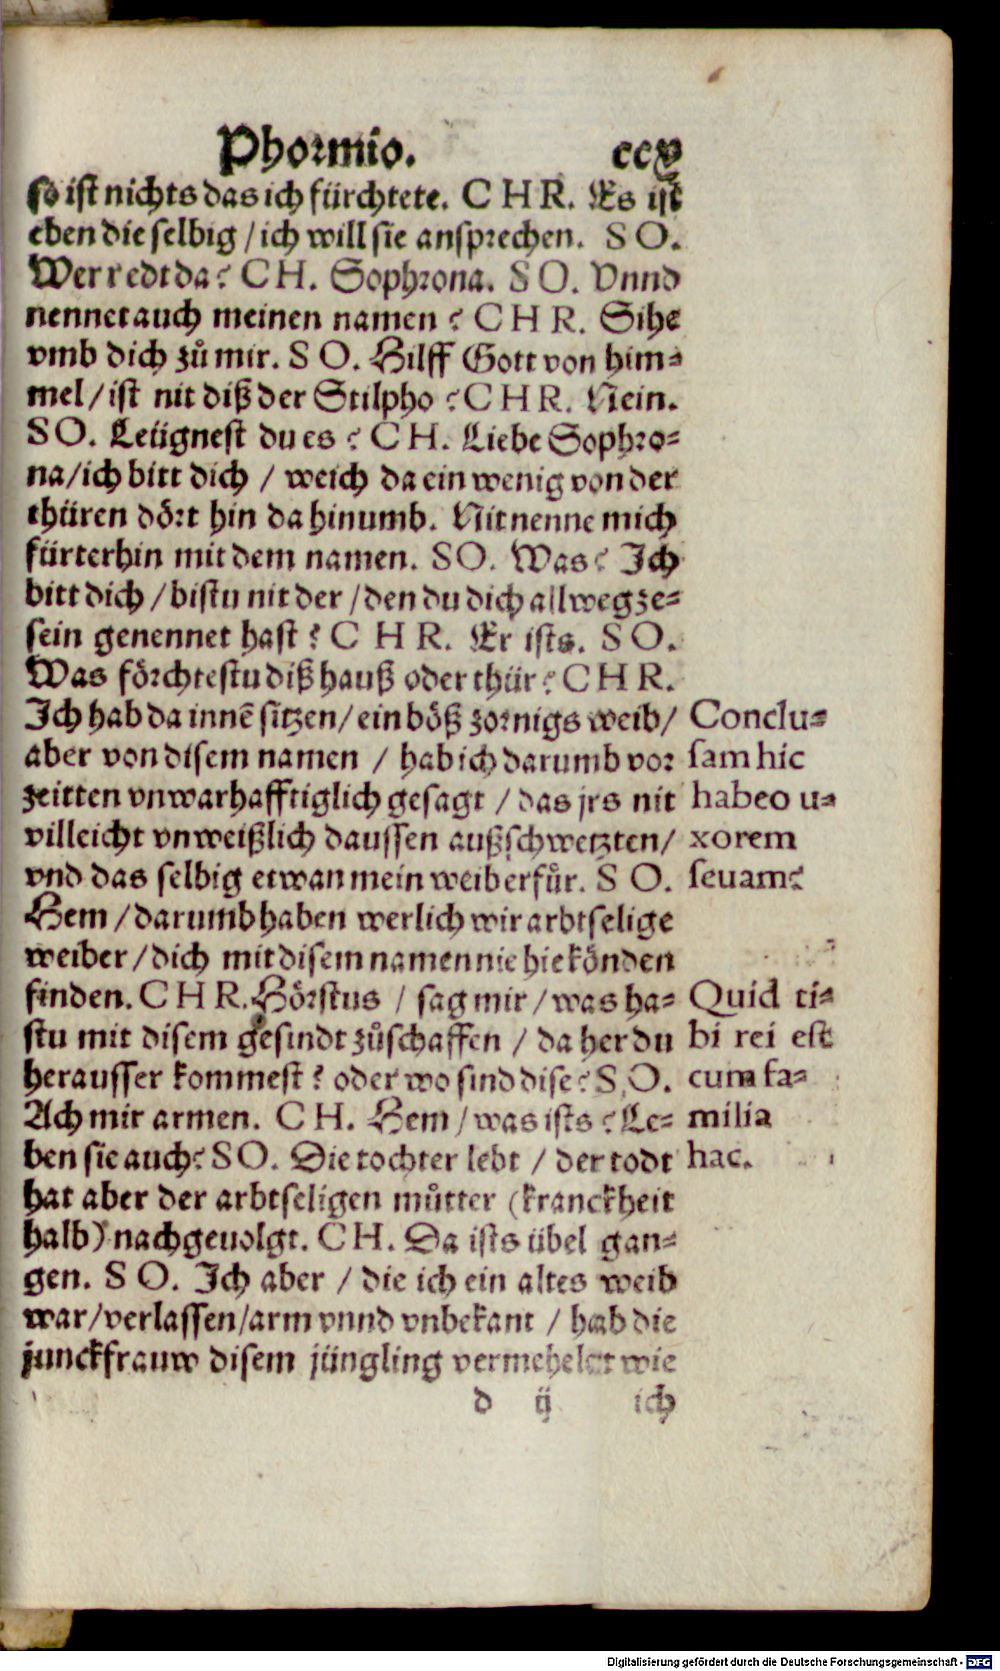 Phormio. ccx
so ist nichts das ich fürchtete. C H R. Es ist
eben die selbig / ich will sie ansprechen. S O.
Wer redt da? C H. Sophrona. S O. Vnnd
nennet auch meinen namen? C H R. Sihe
vmb dich zů mir. S O. Hilff Gott von him-
mel / ist nit diß der Stilpho? C H R. Nein.
S O. Leügnest du es? C H. Liebe Sophro-
na / ich bitt dich / weich da ein wenig von der
thüren dört hin da hinumb. Nit nenne mich
fürterhin mit dem namen. S O. Was? Ich
bitt dich / bistu nit der / den du dich allweg ze-
sein genennet hast? C H R. Er ists. S O.
Was förchtestu diß hauß oder thür? C H R.
Ich hab da innē sitzen / ein böß zornigs weib /
aber von disem namen / hab ich darumb vor
zeitten vnwarhafftiglich gesagt / das jrs nit
villeicht vnweißlich daussen außschwetzten /
vnd das selbig etwan mein weib erfůr. S O.
Hem / darumb haben werlich wir arbtselige
weiber / dich mit disem namen nie hie könden
finden. C H R. Hörstus / sag mir / was ha-
stu mit disem gesindt zůschaffen / da her du
herausser kommest? oder wo sind dise? S O.
Ach mir armen. C H. Hem / was ists? Le-
ben sie auch? S O. Die tochter lebt / der todt
hat aber der arbtseligen můtter (kranckheit
halb) nachgeuolgt. C H. Da ists übel gan-
gen. S O. Ich aber / die ich ein altes weib
war / verlassen / arm vnnd vnbekant / hab die
junckfrauw disem jüngling vermehelet wie
d ij ich
Conclu-
sam hic
habeo u-
xorem
sevam?
Quid ti-
bi rei est
cum fa-
milia
hac.
Digitalisierung gefördert durch die Deutsche Forschungsgemeinschaft - DFG